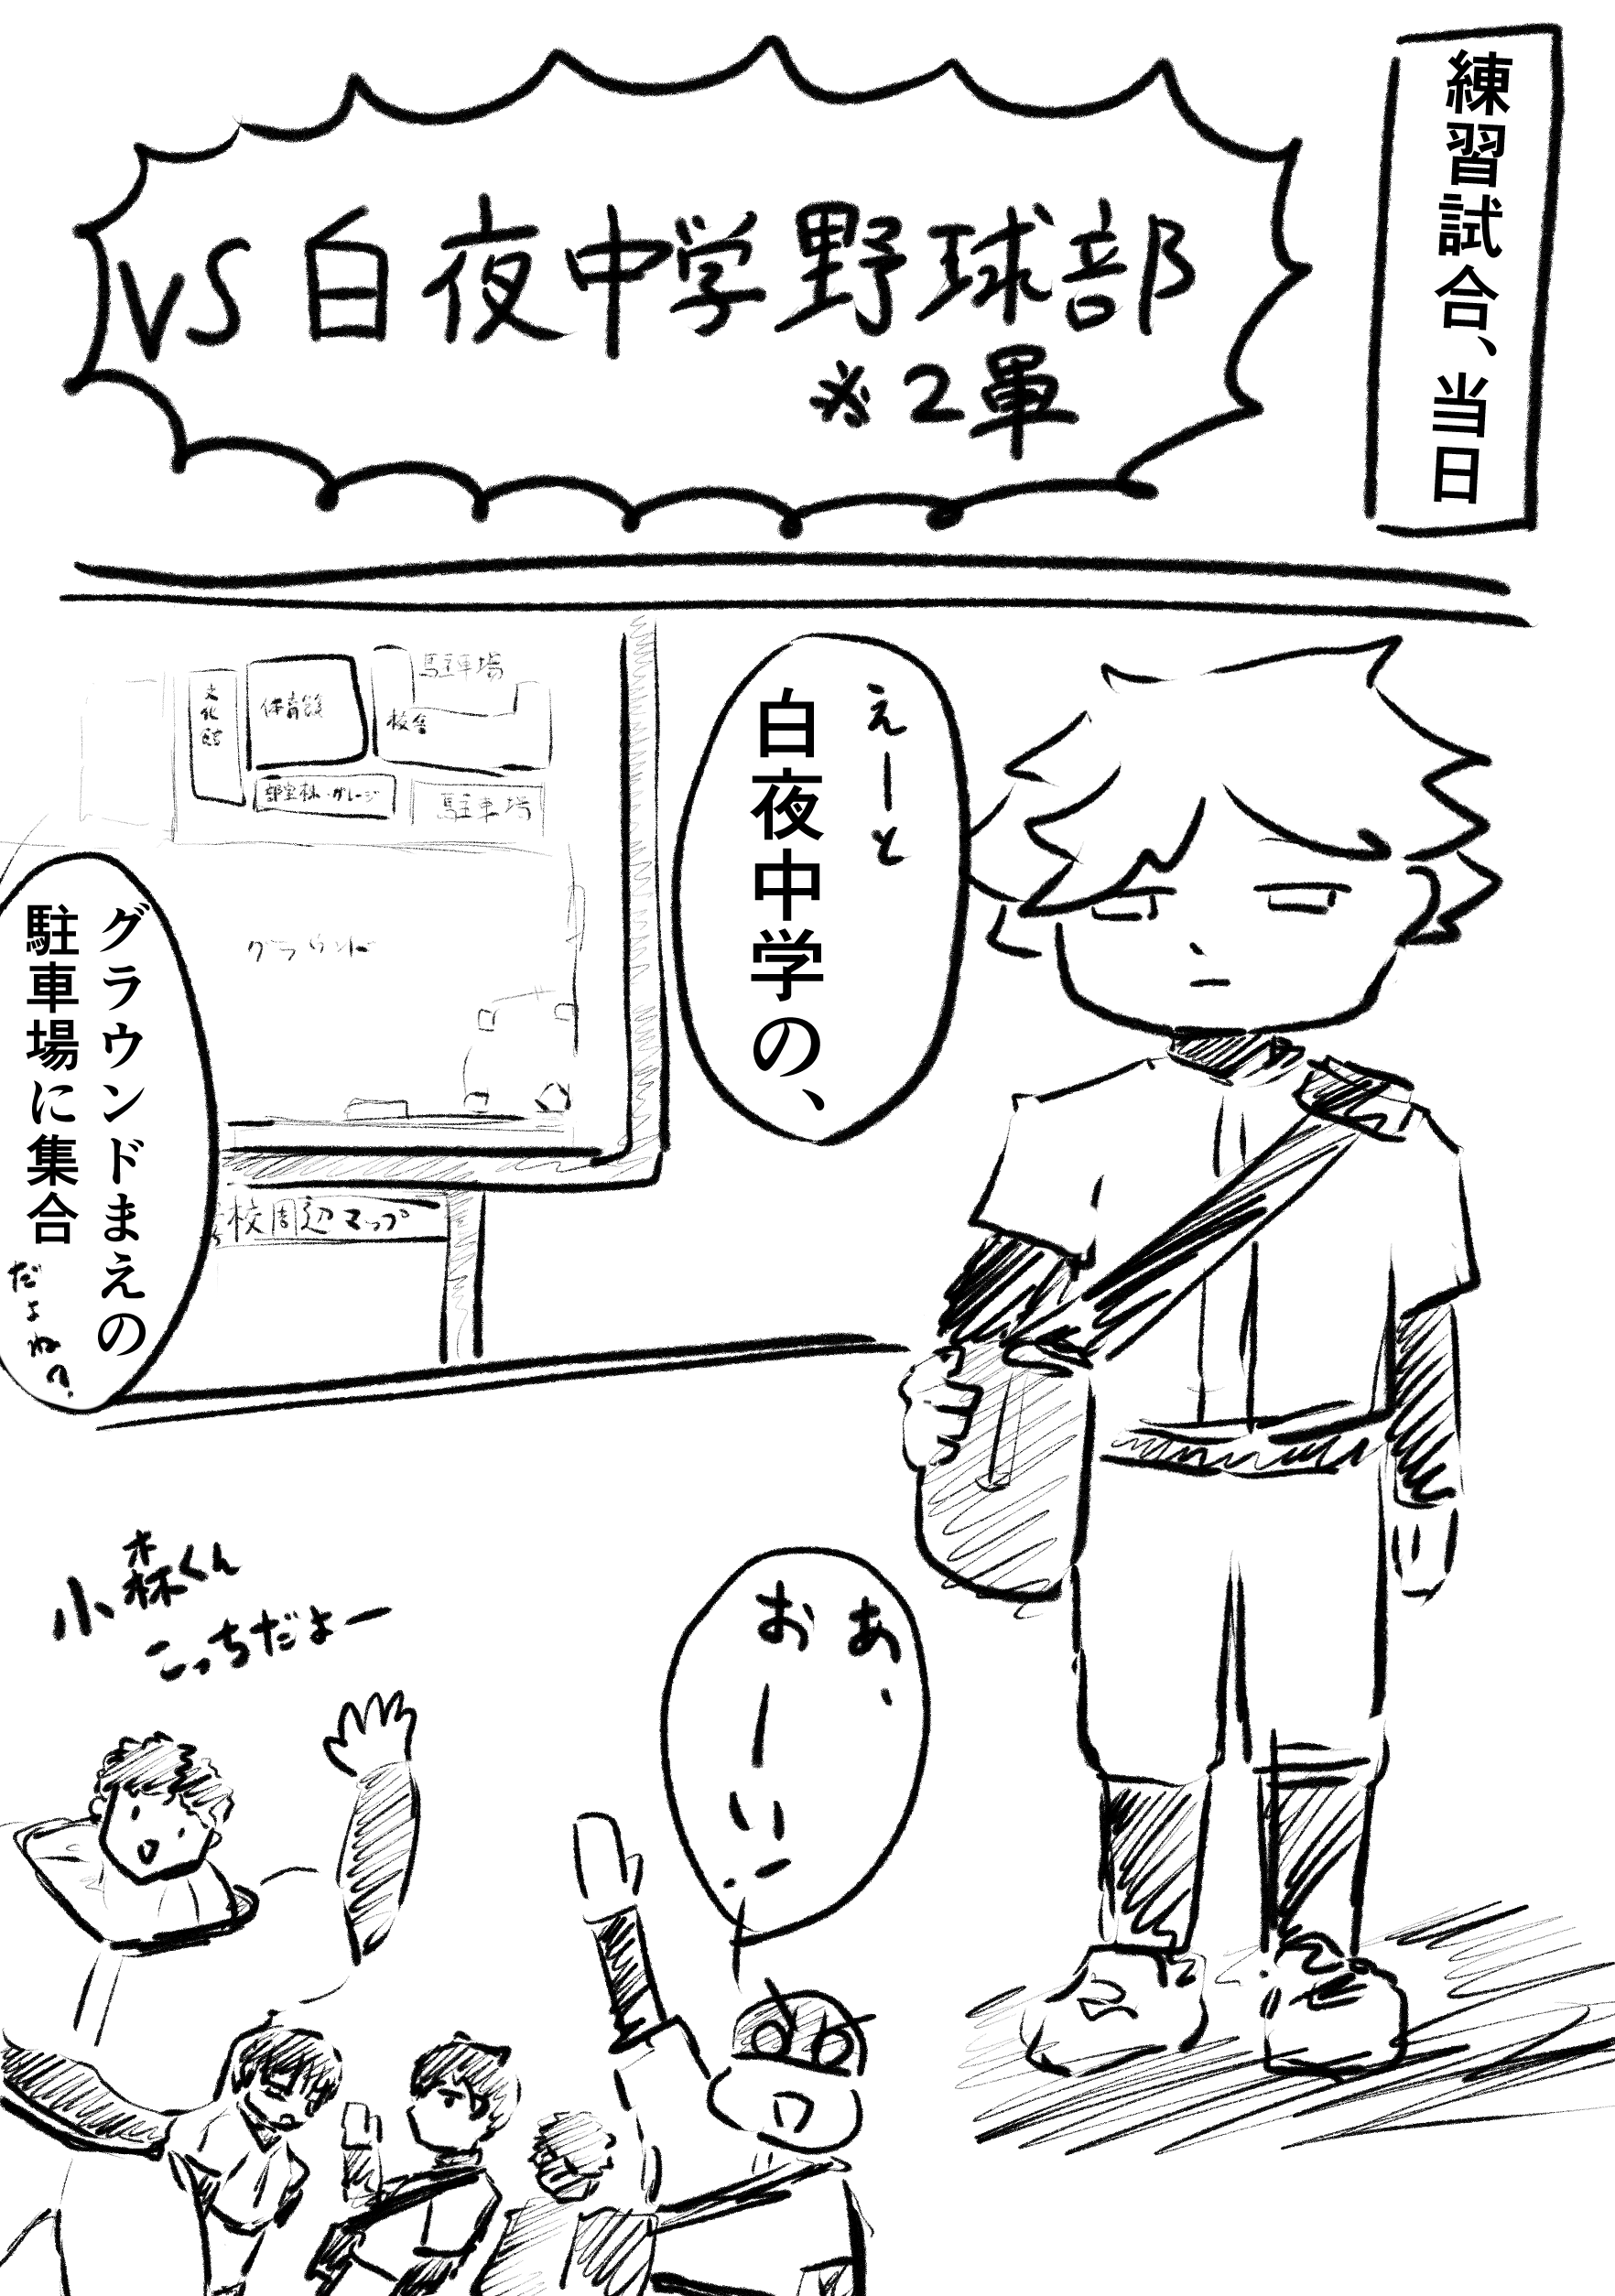 練習試合、当日
VS 白夜中学野球部
※2軍
えーと
白夜中学の、
駐車場
文化館
体育館
校舎
部室棟・ガレージ
駐車場
グラウンド
校周辺マップ
グラウンドまえの
駐車場に集合
だよね?
あ、
おーい!
小森くん
こっちだよー